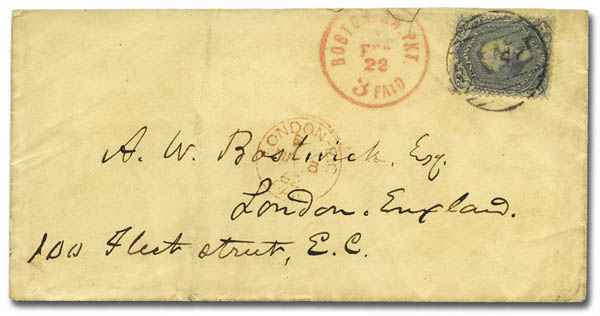 BOSTON BR. PKT.
FEB
22
3 PAID
LONDON-E.C
A. W. Bostwick, Esq.
London. England.
100 Fleet street, E.C.